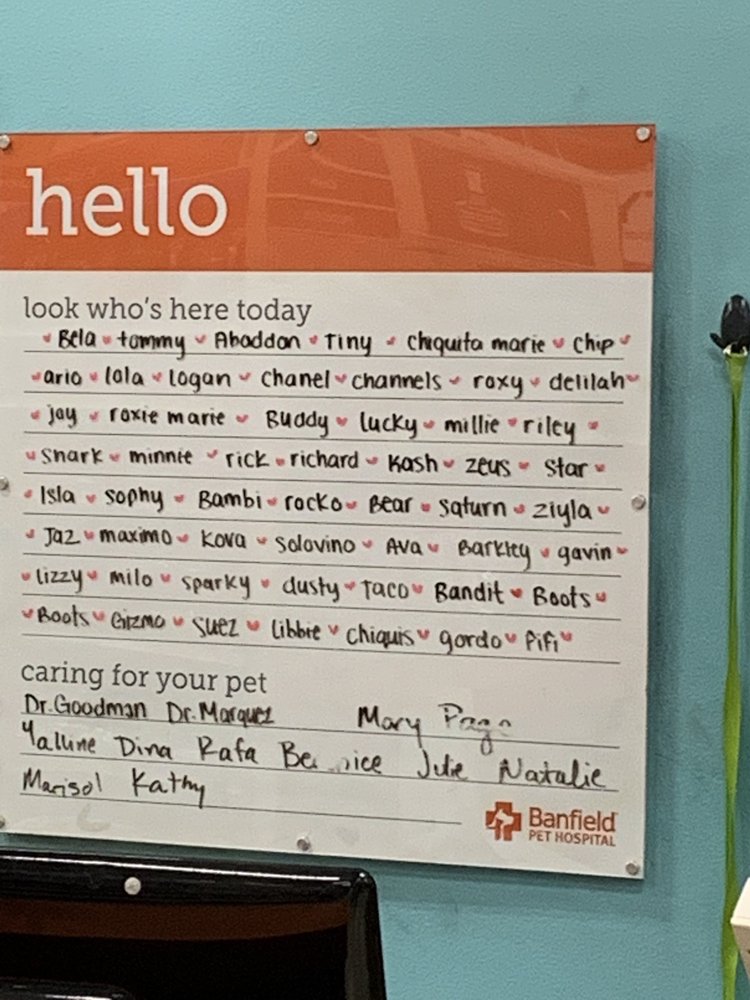 hello
look who's here today
Bela tommy Abaddon Tiny Chiquita marie Chip
ario lola Logan Chanel channels roxy delilah
jay roxie marie Buddy lucky millie riley
Shark minnie rick richard Kash zeus star
Isla sophy Bambi rocko Bear saturn ziyla
Jaz maximo Kova Solovino Ava Barkley gavin
lizzy milo sparky dusty Taco Bandit Boots
Boots Gizmo Suez Libbie Chiquis gordo Fifi
caring for your pet
Dr. Goodman Dr. Marquez Mary
Dina Rafa Julie Natalie
Marisol Kathy
Banfield
PET HOSPITAL